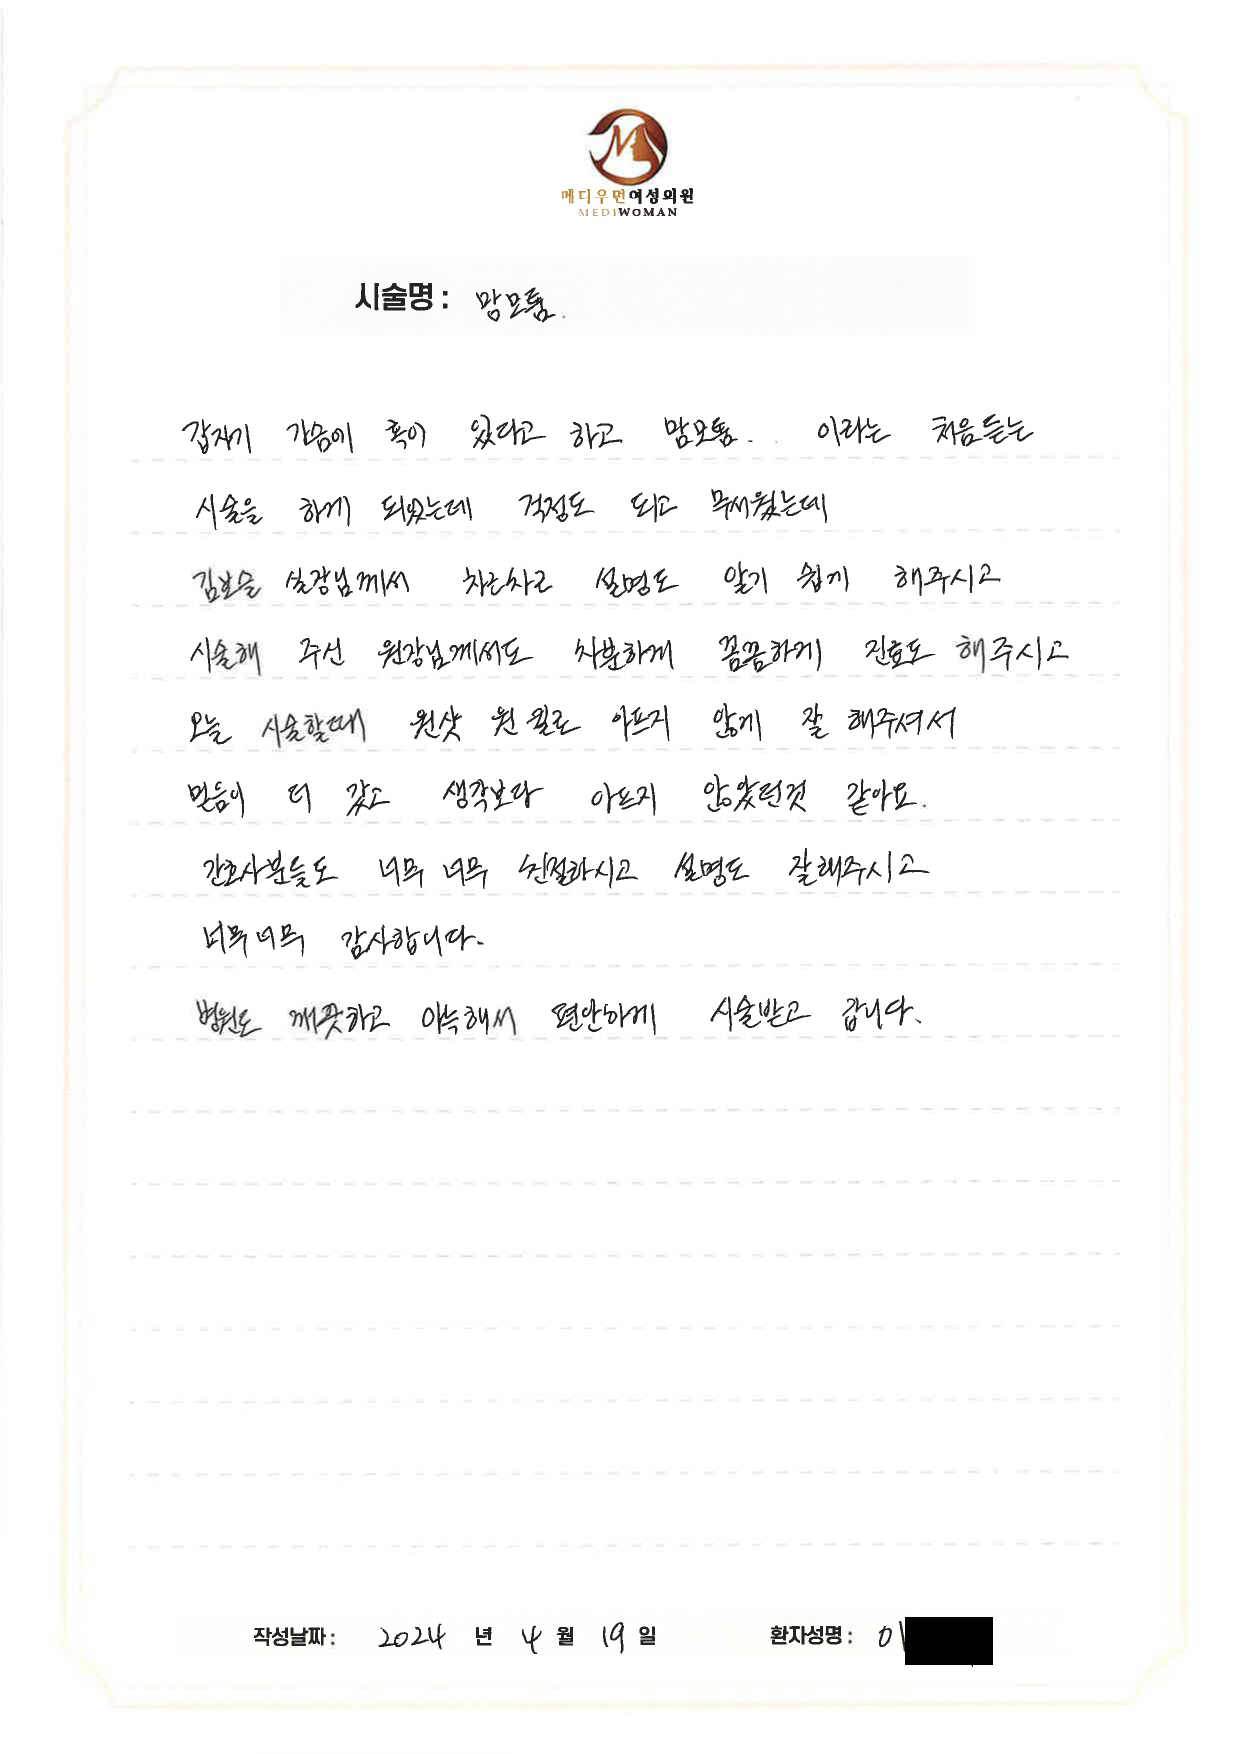 메디우먼여성의원
MEDIWOMAN
시술명 : 맘모톰.
갑자기 가슴에 혹이 있다고 하고 맘모톰.. 이라는 처음듣는
시술을 하게 되었는데 걱정도 되고 무서웠는데
김보슬 실장님께서 차근차근 설명도 알기 쉽게 해주시고
시술해 주신 원장님께서도 차분하게 꼼꼼하게 진료도 해주시고
오늘 시술할때 원샷 원킬로 아프지 않게 잘 해주셔서
믿음이 더 갔고 생각보다 아프지 않았던것 같아요.
간호사분들도 너무 너무 친절하시고 설명도 잘해주시고
너무너무 감사합니다.
병원도 깨끗하고 아늑해서 편안하게 시술받고 갑니다.
작성날짜 : 2024 년 4 월 19 일 환자성명 : 이